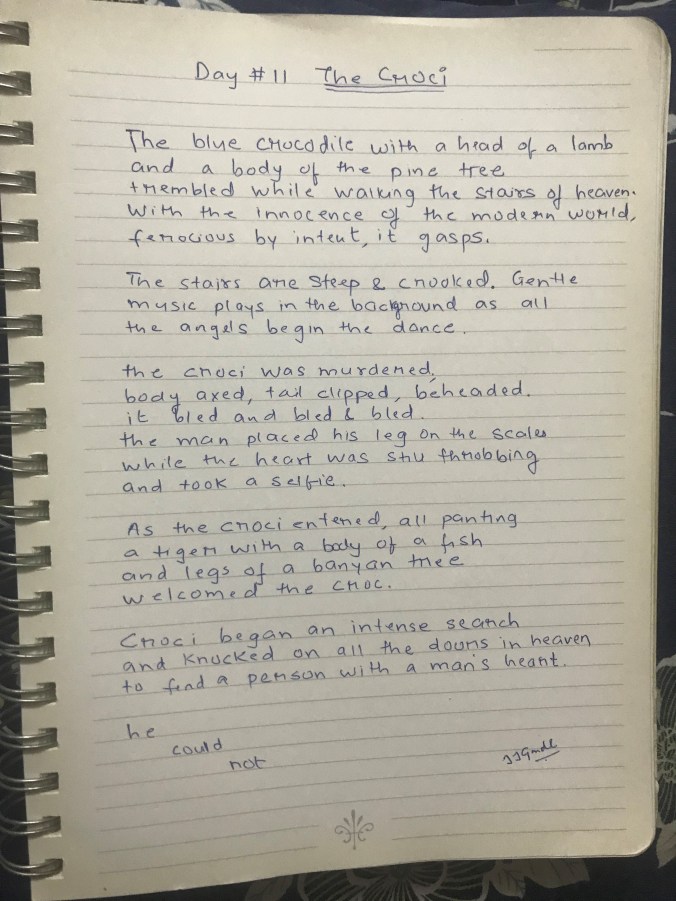 Day #11 The Croci
The blue crocodile with a head of a lamb
and a body of the pine tree
trembled while walking the stairs of heaven.
With the innocence of the modern world,
ferocious by intent, it gasps.
The stairs are steep & crooked. Gentle
music plays in the background as all
the angels begin the dance.
the croci was murdered,
body axed, tail clipped, beheaded.
it bled and bled & bled.
the man placed his leg on the scales
while the heart was still throbbing
and took a selfie.
As the croci entered, all panting
a tiger with a body of a fish
and legs of a banyan tree
welcomed the croc.
Croci began an intense search
and knocked on all the doors in heaven
to find a person with a man's heart.
he
could
not